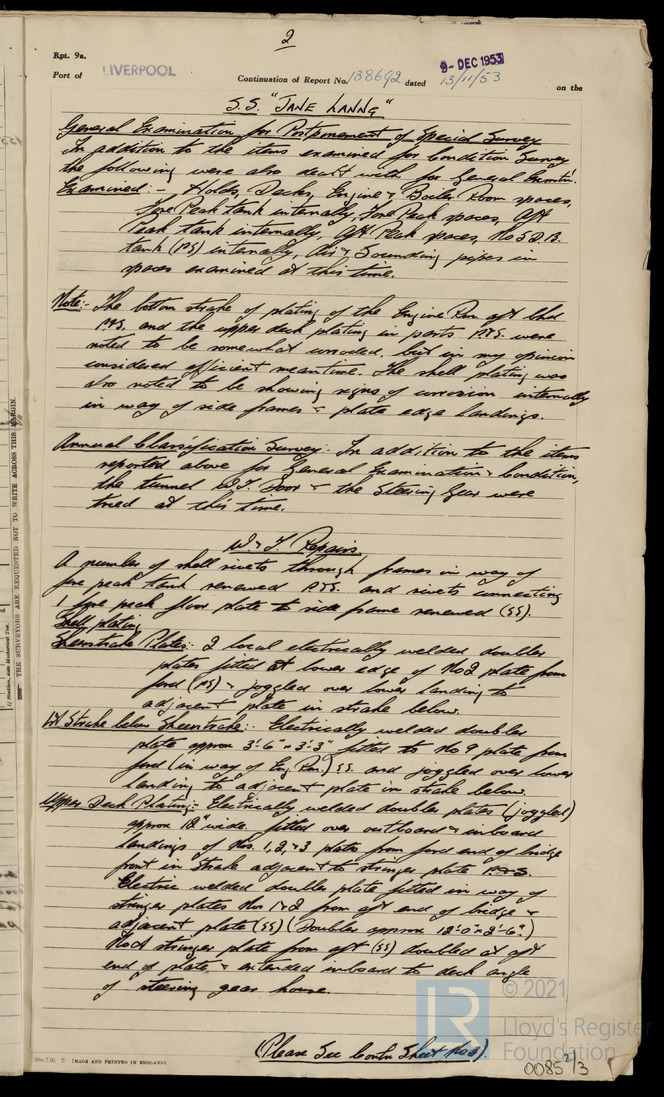 2
Rpt. 9a.
Port of LIVERPOOL
9- DEC 1953
Continuation of Report No. 138692 dated 13/11/53 on the
S.S. "JANE LANNG"
General Examination for Postponement of Special Survey
In addition to the items examined for Condition Survey
the following were also dealt with for General Examtn.
Examined:- Holds, Decks, Engine & Boiler Room spaces,
Fore Peak tank internally, Fore Peak spaces, Aft
Peak tank internally, Aft Peak spaces, No 5 D.B.
tank (PS) internally, Air & Sounding pipes in
spaces examined at this time.
Note:- The bottom strake of plating of the Engine Rm aft bhd
P&S. and the upper deck plating in parts P&S. were
noted to be somewhat corroded, but in my opinion
considered efficient meantime. The shell plating was
also noted to be showing signs of corrosion internally
in way of side frames & plate edge landings.
Annual Classification Survey:- In addition to the items
reported above for General Examination & Condition,
the tunnel W.T. Door & the Steering Gear were
tried at this time.
W. & T. Repairs
A number of shell rivets through frames in way of
fore peak tank renewed P.&S. and rivets connecting
1 fore peak floor plate to side frame renewed (SS).
Shell plating
Sheerstrake Plates: 2 local electrically welded doubler
plates fitted at lower edge of No 2 plate from
ford (PS) & joggled over lower landing to
adjacent plate in strake below.
1st Strake below Sheerstrake:- Electrically welded doubler
plate approx 3'-6" x 3'-3" fitted to No 9 plate from
ford (in way of Eng. Rm.) S.S. and joggled over lower
landing to adjacent plate in strake below.
Upper Deck Plating:- Electrically welded doubler plates (joggled)
approx 12" wide fitted over outboard & inboard
landings of Nos. 1, 2, & 3 plates from ford end of bridge
front in strake adjacent to stringer plate P.&S.
Electric welded doubler plate fitted in way of
stringer plates Nos 1 & 2 from aft end of bridge &
adjacent plate (SS) (Doubler approx 12'-0" x 2'-6".)
stringer plate from aft (SS) doubled at aft
end of plate & extended inboard to deck angle
of steering gear house.
(Please See Contn Sheet No
20m.7.50. T. (MADE AND PRINTED IN ENGLAND)
THE SURVEYORS ARE REQUESTED NOT TO WRITE ACROSS THIS MARGIN.
LR © 2021
Lloyd's Register
Foundation
0085 2/3